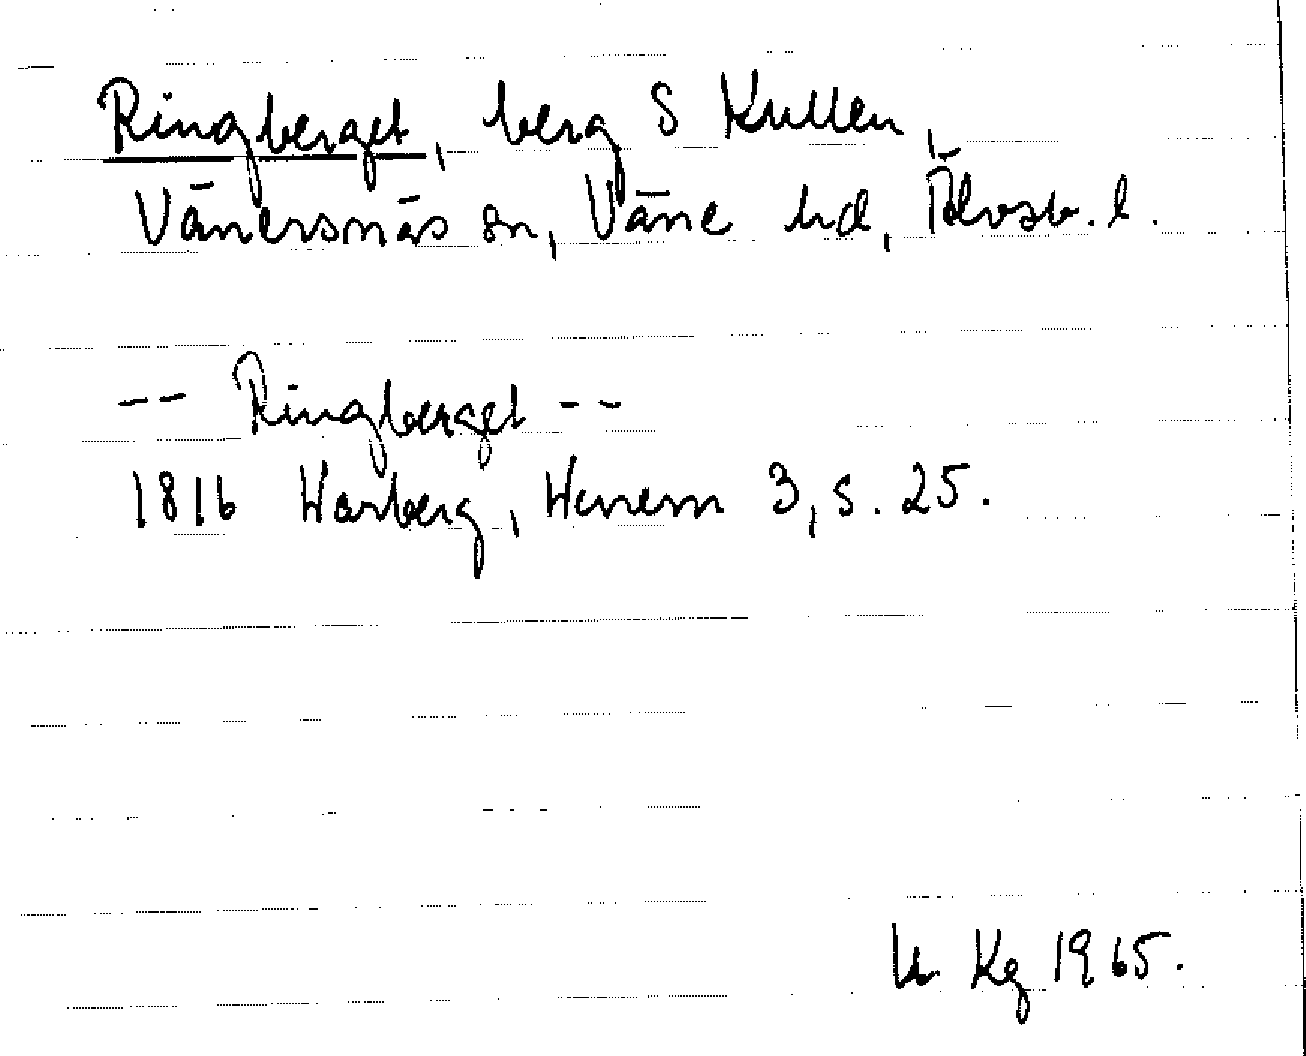 Ringberget, berg S Kullen,
Vänersnäs sn, Väne hd, Älvsb. l.
-- Ringberget --
1816 Warberg, Wenern 3, s. 25.
Kg 1965.